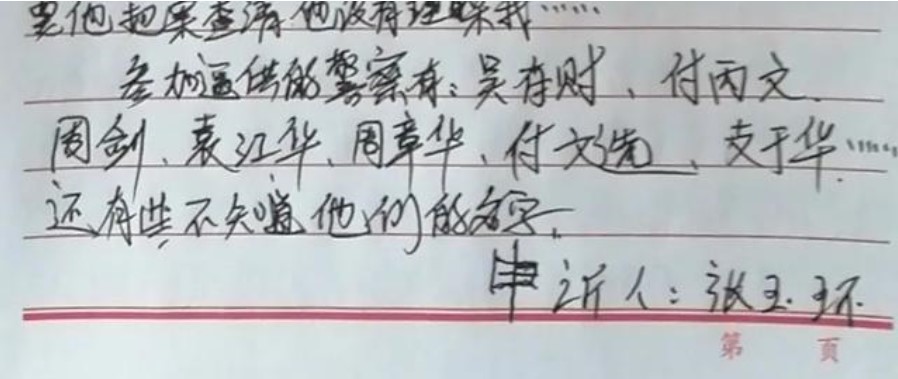 里他把案查清他没有理睬我……
参加逼供的警察有：吴存财、付丙文、
周剑、袁江华、周章华、付文先、支于华……
还有些不知道他们的名字。
申诉人：张玉环
第 页